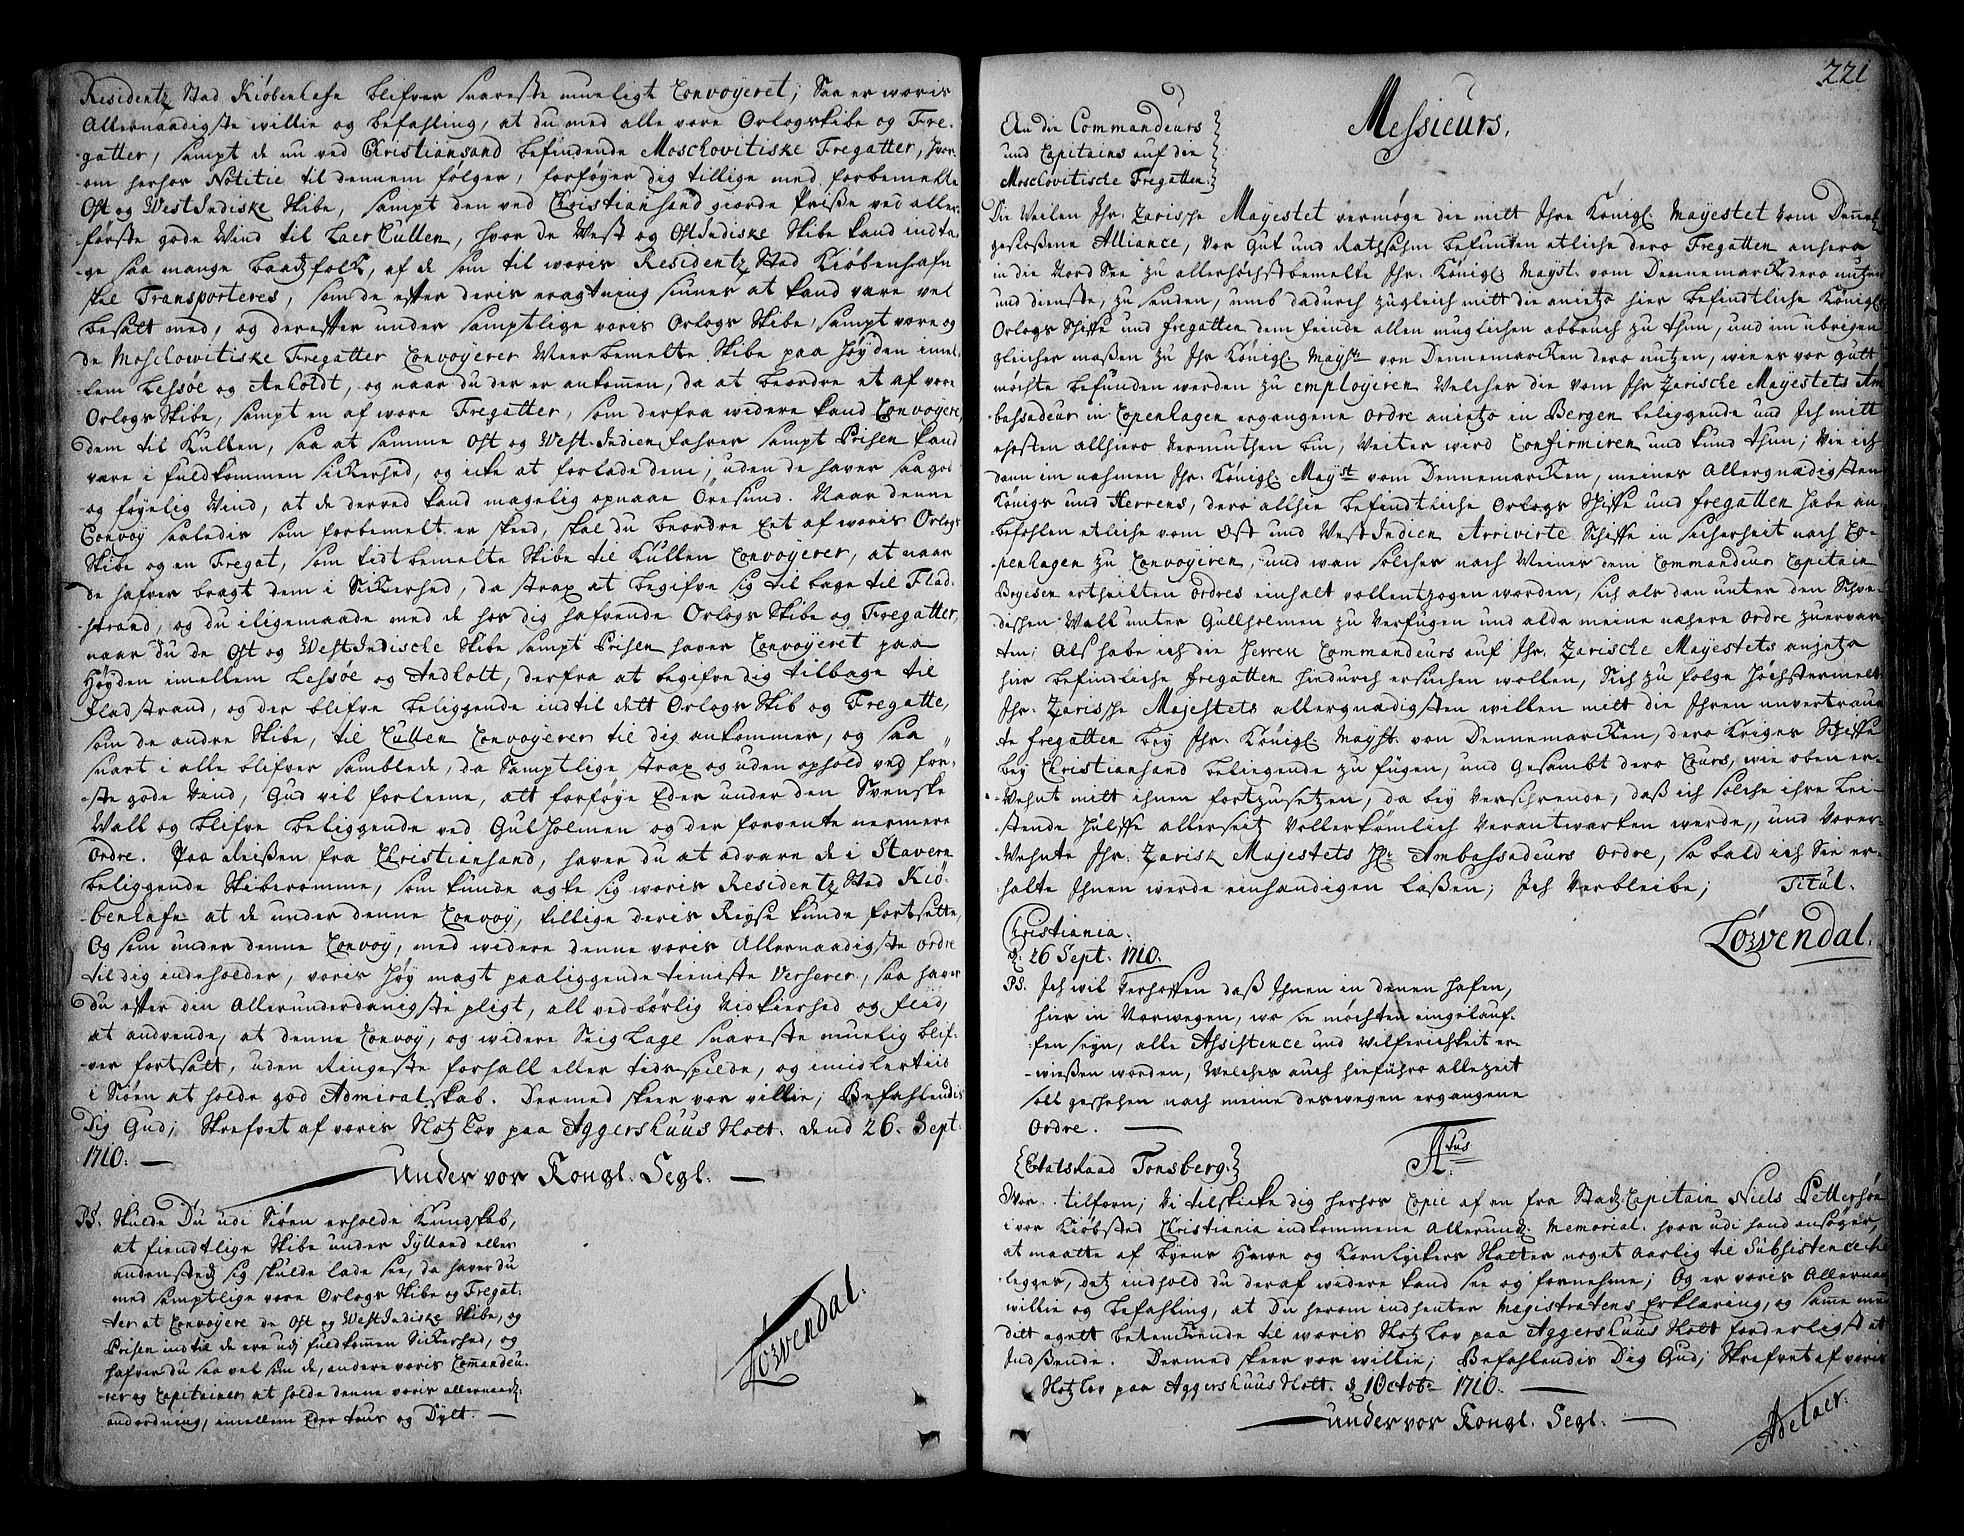 Residentz Stad Kiøbenhafn blifver snareste mueligt Convoyeret; Saa er woris
Allernaadigste willie og befahling, at du med alle vore Orlogskibe og Fre-
gatter, sampt de nu ved Christiansand befindende Moschovitiske Fregatter, hvor-
om herhos Notitie til dennem følger, forføyer dig tillige med forbemelte
Ost og WestIndiske Skibe, sampt den ved Christianhand giorde Priße ved aller-
første gode Wind til Laer Cullen, hvor de West og OstIndiske Skibe kand indta-
ge saa mange baadzfolck, af de som til woris Residentz Stad Kiøbenhafn
skal Transporteres, som de efter deris eragtning siunes at kand vare vel
besatt med, og derefter under samptlige voris Orlogs Skibe, sampt vore og
de Moschowitiske Fregatter Convoyerer Meerbemelte Skibe paa Høyden imel-
lem Lessøe og Anholdt, og naar du der er ankommen, da at beordre et af vore
Orlogs Skibe, sampt en af wore Fregatter, som derfra widere kand Convoyere
dem til Kullen, saa at samme Ost og West-Indien fahrer sampt Prisen kand
vare i fuldkommen sickerhed, og icke at forlade dem, uden de haver saa god
og føyelig Vind, at de derved kand magelig opnaae Øresund. Naar denne
Convoy saaledis som forbemelt er skeed, skal du beordre Eet af woris Orlogs
Skibe og en Fregat, som tidtbemelte Skibe til Kullen Convoyerer, at naar
de hafver bragt dem i Sickerhed, da strax at begifve sig til bage til Flad-
strand, og du iligemaade med de hos dig hafvende Orlogs Skibe og Fregatter,
naar du de Ost og WestIndische Skibe sampt Prisen haver Convoyeret paa
Høyden imellem Lessøe og Andholt, derfra at begifve dig tilbage til
Fladstrand, og der blifve beliggende indtil dett Orlogs Skib og Fregatte,
som de andre Skibe, til Cullen Convoyerer til dig ankommer, og saa
snart i alle blifver samblede, da Samptlige strax og uden ophold ved for-
ste gode Vand, Gud vil forleene, att forføye Eder under den Svenske
Wall og blifve beliggende ved Gulholmen og der forvente nermere
ordre. Paa Reißen fra Christianhand, haver du at advare de i Stavern
beliggende Skiberomme, som kunde agte sig woris Residentz Stad Kiø-
benhafn at de under denne Convoy, tillige deris Reyse kunde fortsette,
Og som under denne Convoy, med widere denne voris Allernaadigste ordre
til dig indeholder, voris høy magt paaliggende tieniste Verserer, saa haver
du efter den Allerunderdanigste pligt, all vedbørlig Vidkierhed og flid,
at andvende, at denne Convoy, og widere Seiglage snareste muelig blif-
ver fortsatt, uden Ringeste forhall eller tidspilde, og imidlertiid
i Siøen at holde god Admiralskab. Dermed skeer vor villie; Befahlendis
Dig Gud; Skrefvet af voris Slotz Lov paa Aggershuus Slott. dend 26. Sept.
1710. —
Under vor Kongl. Segl. —
PS. Skulde Du udi Siøen erholde Kundskab,
at fiendtlige Skibe under Jylland eller
andenstedz sig skulde lade see, da haver du
med samptlige vore Orlogs Skibe og Fregat-
ter at Convoyere de Ost og WestIndiske Skibe, og
Prisen indtil de ere udj fuldkommen Sickerhed, og
hafver du saa vel som de, andere voris Commandeu-
rer og Capitainer at holde denne voris allernaadz.
andordning, imellem Eder taus og Dylt. —
Løwendal.

221
Messieurs.
An die Commandeurs
und Capitains auf die
Moschovitische Fregatten.
Die Weilen Ihr. Zarische Mayestet vermøge die mitt Ihre Königl. Mayestet vom Dennem.
geschloßene Alliance, vor gut und Rathsahm befunden etliche dero Fregatten anhero
in die Nord See zu allerhöchstbemelte Ihr. Königl. Mayst. vom Dennemarck dero nutzen
und dienste, zu senden, umb dadurch zugleich mitt die anietzo hier befindtliche Königl.
Orlogs Schiffe und fregatten dem feinde allen muglichen abbruch zu thun, und im ubrigen
gleicher maßen zu Ihr Königl. Mayst. von Dennemarcken dero nutzen, wie er vor gutt
möchte befunden werden zu employeren Welches die vom Ihr Zarische Mayestets Am-
bassadeur in Copenhagen ergangene ordre anietzo in Bergen beliggende und Ich mitt
ehesten allhiero vermuthen bin, Weiter wird Confirmiren und kund thun; Wie ich
dann im nahmen Ihr. Königl. Mayst. vom Dennemarcken, meines Allergnädigsten
Königs und Herrens, dero allhie befindtliche Orlogs Schiffe und fregatten habe an-
befohlen etliche vom Ost und WestIndien Arrivirte Schiffe in sicherheit nach Co-
penhagen zu Convoyiren, und wan solches nach Meiner dem Commandeur Capitain
Boyesen ertheilten ordres einhalt vollentzogen worden, sich als dan unter den Schwe-
dischen Wall unter Gullholmen zu Verfugen und alda meine nähere ordre zuerwar-
ten; Als habe ich die Herren Commandeurs auf Ihr. Zarische Mayestets anjetzo
hier befindliche fregatten hiedurch ersuchen wollen, Sich zu folge höchstermelt.
Ihr. Zarische Majestets allergnädigsten willen mitt die Ihren anvertrau-
te fregatten bey Ihr. Königl. Mayst. von Dennemarcken, dero Kriges Schiffe
bey Christianhand beliegende zu fügen, und Gesambt dero Cours, wie oben er-
Wehnt mitt ihnen fortzusetzen, da bey Versichrende, daß ich solche ihre Lei-
stende hülffe allerseitz Vollerkömlich Verantwarken werde, und vorer-
Wehnte Ihr. Zarisk Majestets H. Ambassadeurs Ordre, so bald ich Sie er-
halte Ihnen werde einhändigen laßen; Ich Verbleibe; Titul.
Løwendal.
Christiania.
d. 26 Sept. 1710.
PS. Ich wil Verhoffen daß Ihnen in denen hafen,
hier in Norwegen, wo sie möchten eingelauf-
fen seyn, alle Assistence und Wilferichkeit er-
wießen worden, Welches auch hinführo allezeit
soll geschehen nach meine deswegen ergangene
Ordre. —
Atus
Etatsraad Tonsberg.
Vor. tilforn; Vi tilskicke dig herhos Copie af en fra Stadz Capitain Niels Pettersøn
i vor Kiøbsted Christiania indkommene Allerund. Memorial. hvor udi hand ansøger,
at maatte af Byens Havne og Kornlyckers Skatter noget Aarlig til Subsistence til-
legges, detz indhold du deraf widere kand see og fornehme; Og er voris Allernaa.
willie og befahling, at Du herom indhenter Magistratens Erklæring, og samme med
ditt egett betenckende til woris Slotz Lov paa Aggershuus Slott forderligst at
Indßende. Dermed skeer vor willie; Befahlendis Dig Gud; Skrefvet af voris
Slotz Lov paa Aggershuus Slott. d. 1 Octobr. 1710. —
Under vor Kongl. Segl. —
Adelaer.